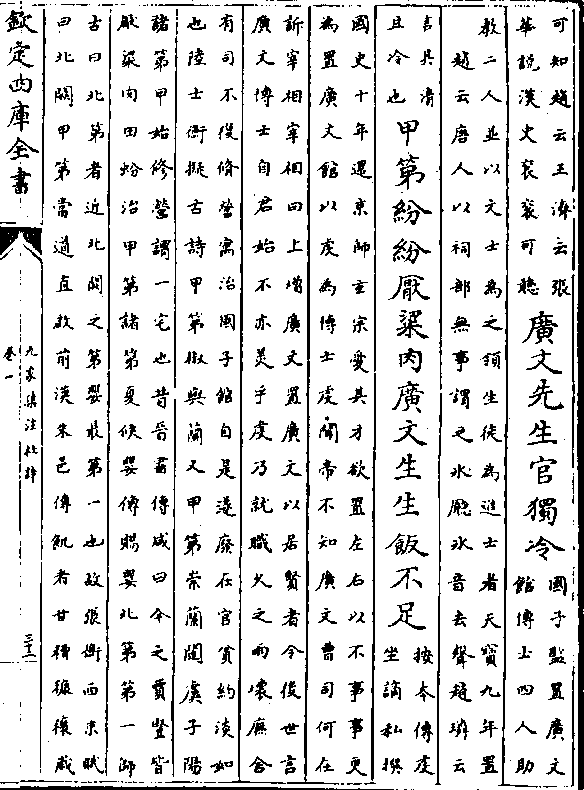 可知趙云王濟云張
華説漢史衮衮可聽
廣文先生官獨冷
國子監置廣文
館博士四人助
教二人並以文士為之領生徒為進士者天寳九年置
趙云唐人以祠部無事謂之氷㕔氷音去聲趙璘云
言其清
且冷也
甲第紛紛厭粱肉廣文生生飯不足
按本傳䖍
坐謫私撰
國史十年還京師玄宗愛其才欲置左右以不事事更
為置廣文館以䖍為博士䖍聞帝不知廣文曹司何在
訴宰相宰相曰上增廣文置廣文以居賢者令後世言
廣文博士自君始不亦美乎䖍乃就職久之雨壞廡舍
有司不復脩營寓治國子館自是遂廢在官貧約淡如
也陸士衡擬古詩甲第椒與蘭又甲第崇蘭闥虞子陽
諸第甲始修營謂一宅也昔晉書傳咸曰今之賈豎皆
厭粱肉田蚡治甲第諸第夏侯嬰傳賜嬰北第第一師
古曰北第者近北闕之第嬰最第一也故張衡西京賦
曰北闕甲第當道直啟前漢朱邑傳飢者甘糟糠穰歲
欽定四庫全書
九家集注杜詩
卷一
三十二